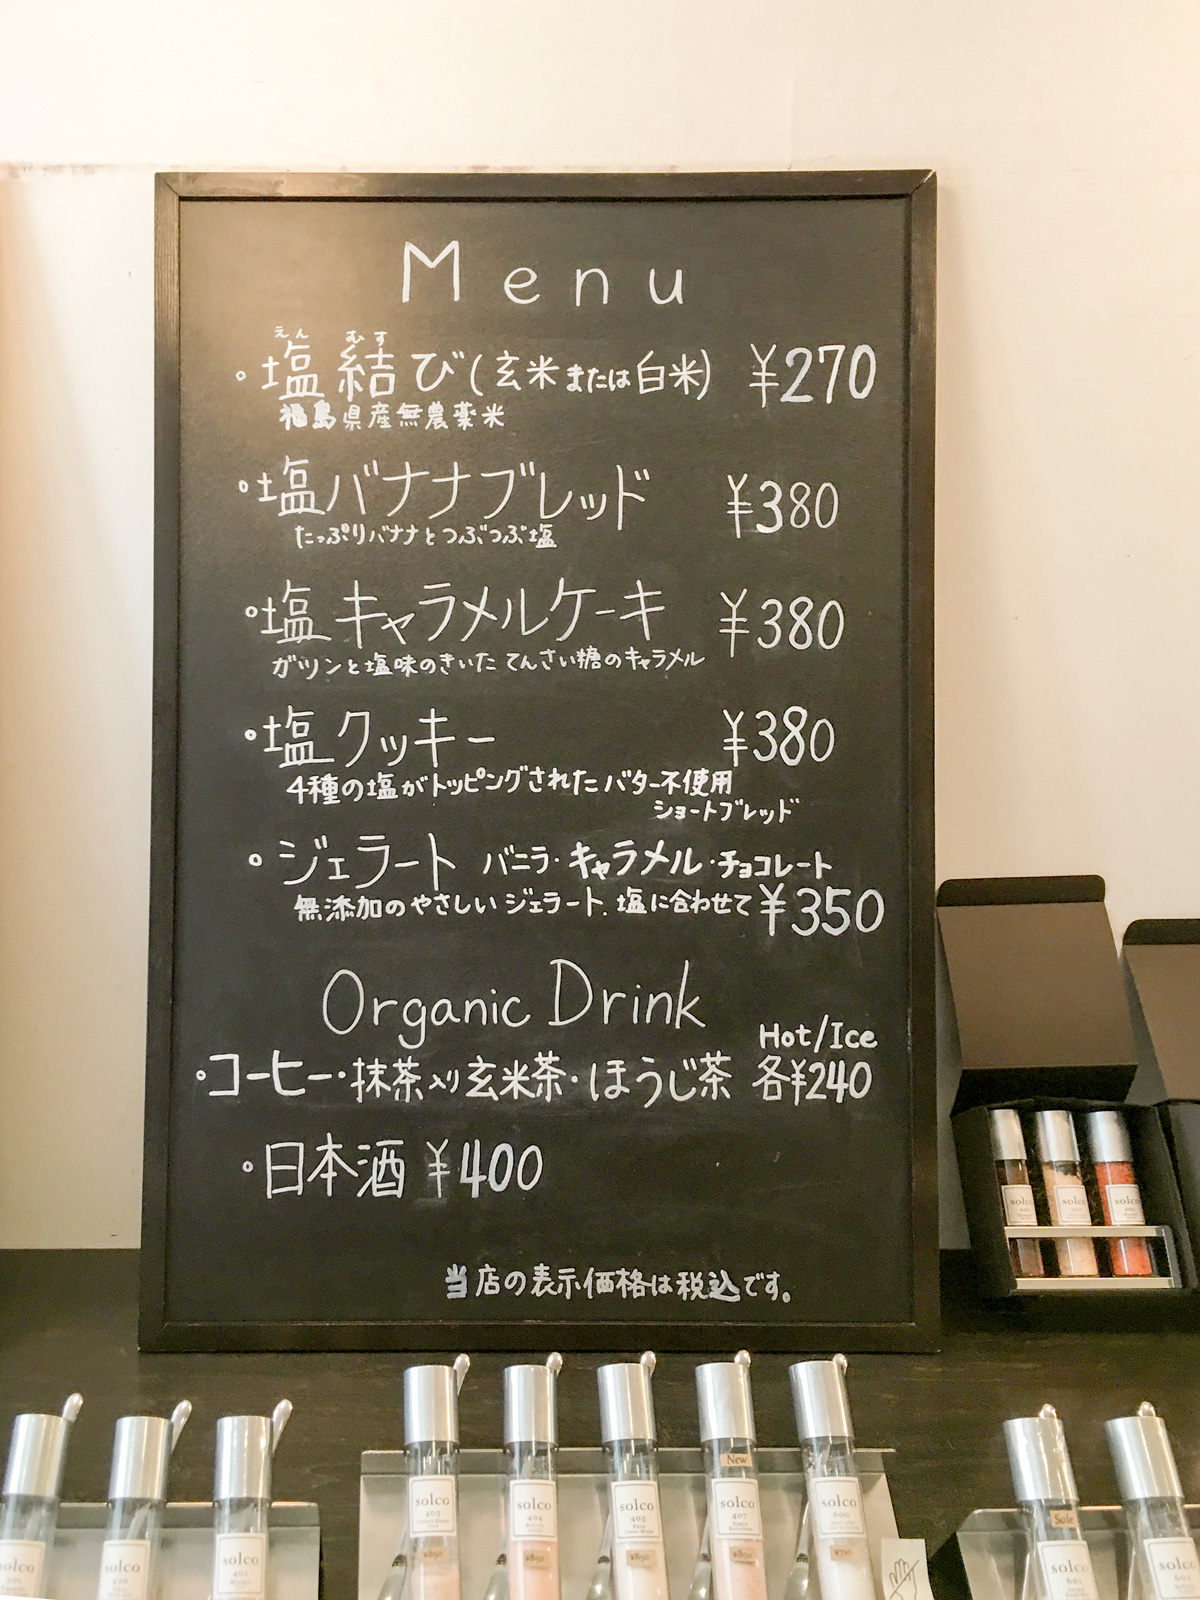 Menu
えん むす
。塩結び(玄米または白米) ¥270
福島県産無農薬米
。塩バナナブレッド ¥380
たっぷりバナナとつぶつぶ塩
。塩キャラメルケーキ ¥380
ガツンと塩味のきいた てんさい糖のキャラメル
。塩クッキー ¥380
4種の塩がトッピングされた バター不使用
ショートブレッド
。ジェラート バニラ・キャラメル・チョコレート
無添加のやさしいジェラート、塩に合わせて ¥350
Organic Drink
Hot/Ice
。コーヒー・抹茶入り玄米茶・ほうじ茶 各¥240
。日本酒 ¥400
当店の表示価格は税込です。
solco
solco
solco
New
solco
403
¥850
solco
404
¥850
solco
405
¥850
solco
407
¥850
solco
600
solco
solco
solco
401
Sale
solco
solco